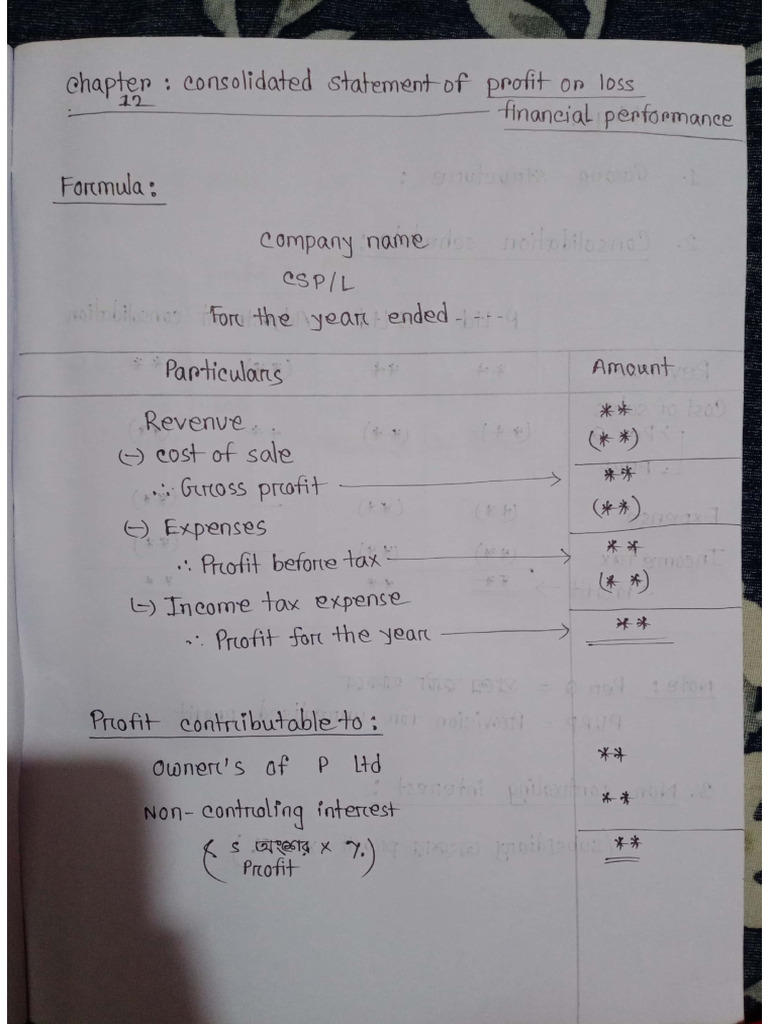 Chapter : consolidated statement of profit or loss
12
financial performance
Formula :
Company name
CSP/L
For the year ended -----
Particulars Amount
Revenue **
(-) cost of sale (**)
∴ Gross profit **
(-) Expenses (**)
∴ Profit before tax **
(-) Income tax expense (**)
∴ Profit for the year **
Profit contributable to :
Owner's of P Ltd **
Non-controling interest **
(S অংশের x %) **
Profit